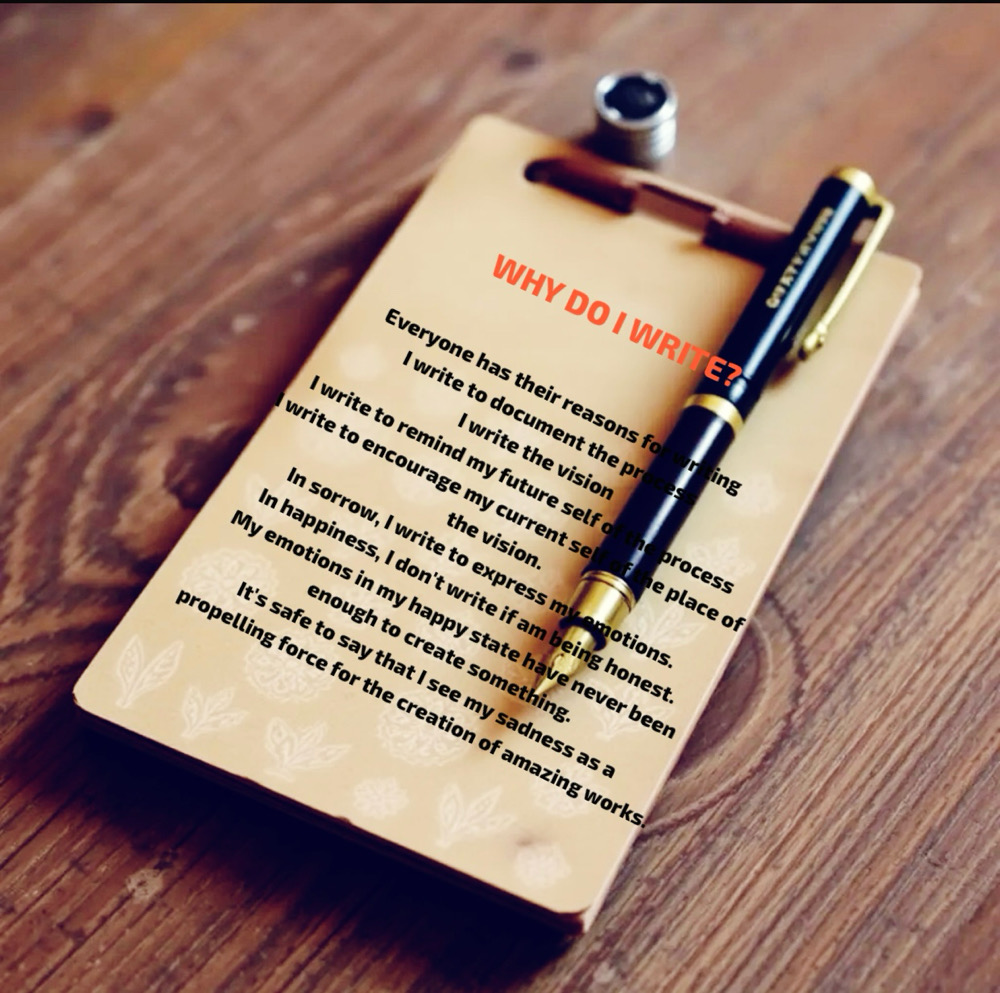 WHY DO I WRITE?
Everyone has their reasons for writing
I write to document the process
I write the vision
I write to remind my future self of the process
I write to encourage my current self of the place of
the vision.
In sorrow, I write to express my emotions.
In happiness, I don't write if am being honest.
My emotions in my happy state have never been
enough to create something.
It's safe to say that I see my sadness as a
propelling force for the creation of amazing works.